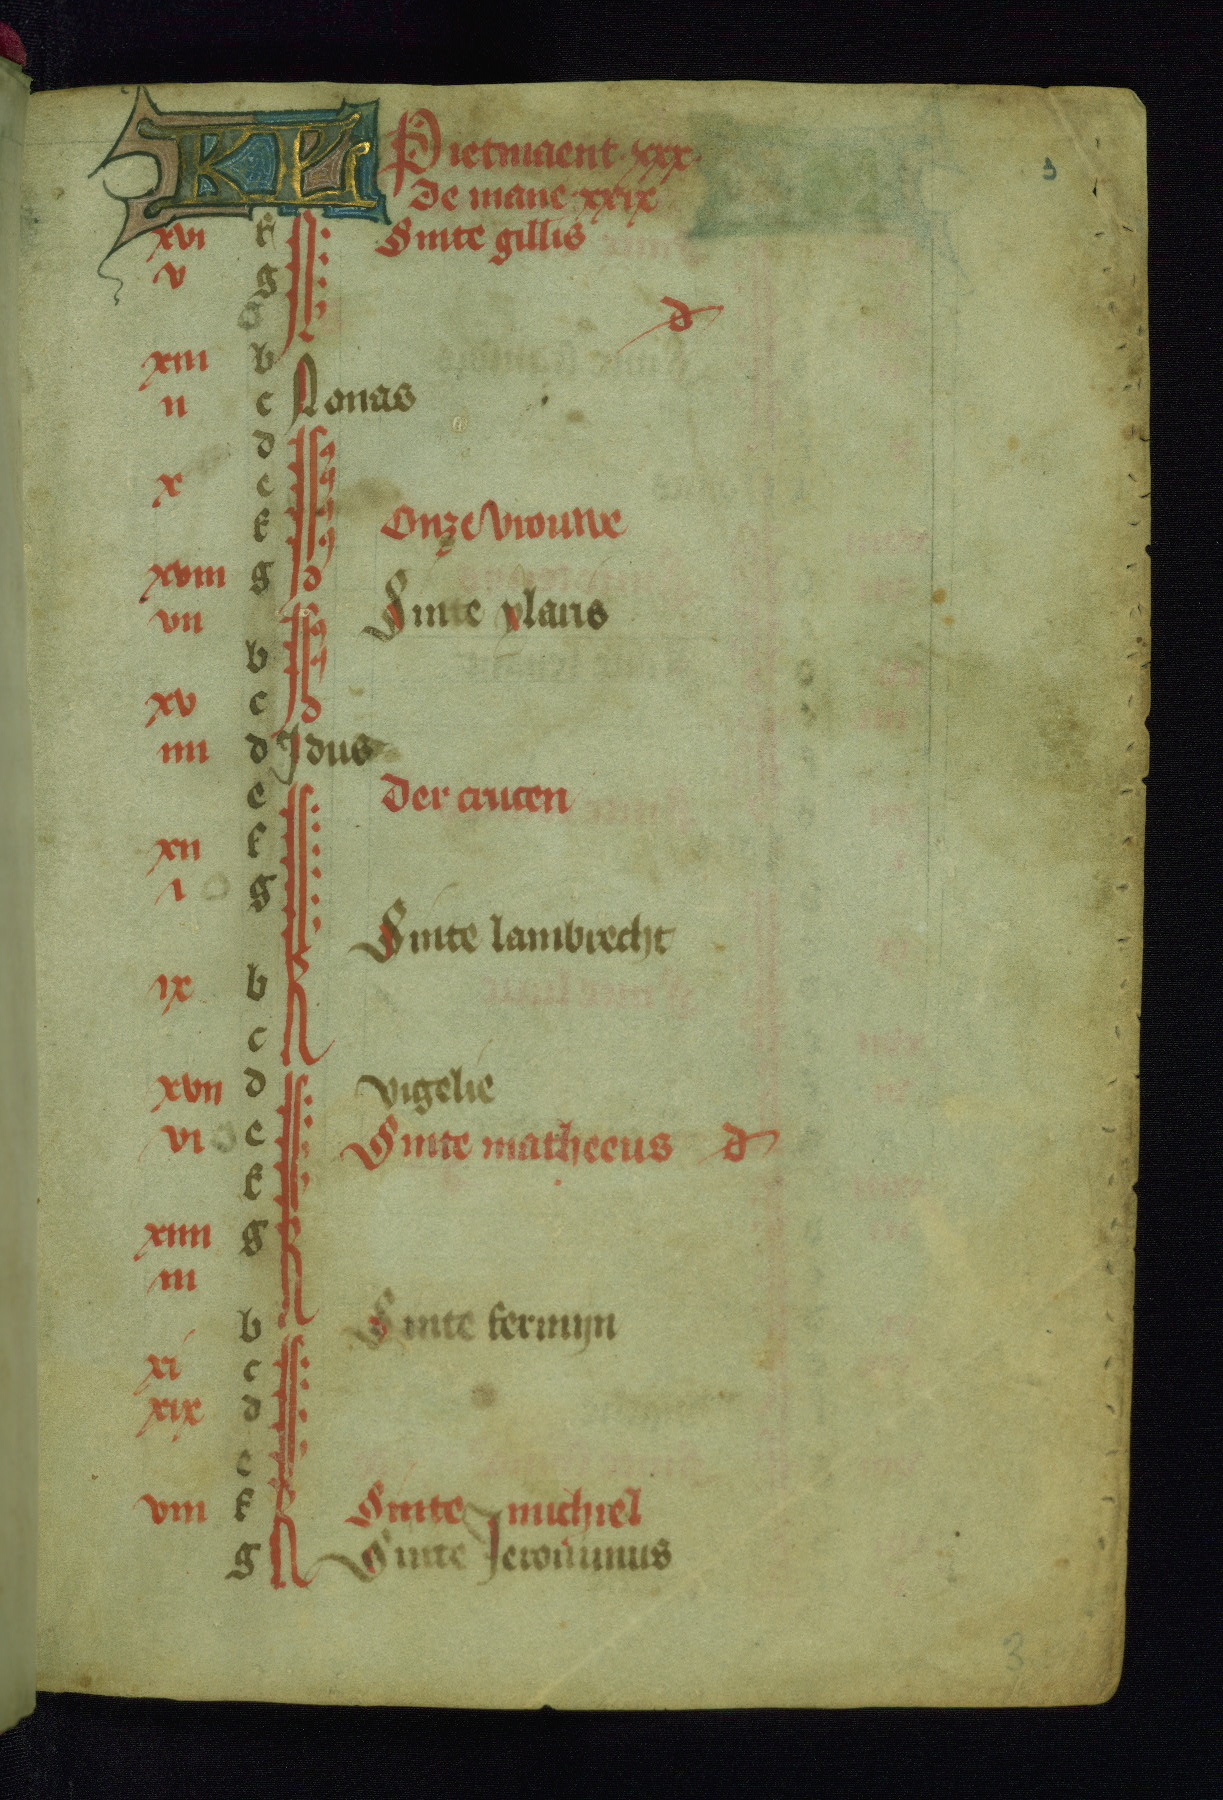 KL Pietmaent · xxx ·
De mane xxix
xvi f Sinte gillis
v g
d
xiii b
ii c Nonas
d
x e
f Onze vrouwe
xviii g d
vii Sinte ylaris
b
xv c d
iiii d Idus
e Der crucen
xii f
i g
Sinte lambrecht
ix b
c
xvii d vigelie
vi e Sinte matheeus d
f
xiiii g
iii
b Sinte fermijn
xi c
xix d
e
viii f Sinte michiel
g Sinte Jeronimus
3
3